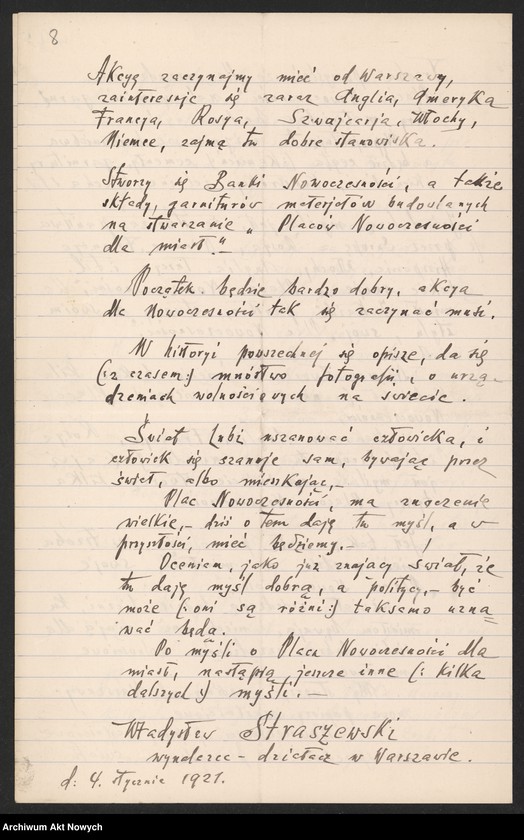 8
Akcyę zaczynajmy mieć od Warszawy,
zainteresuje się zaraz Anglia, Ameryka
Francja, Rosya, Szwajcarja, Włochy,
Niemce, zajmą tu dobre stanowiska.
Stworzy się Banki Nowoczesności, a także
składy, garniturów materjałów budowlanych
na stwarzanie „Placów Nowoczesności
dla miast."
Początek będzie bardzo dobry, akcya
dla Nowoczesności tak się zaczynać musi.
W historyi powszechnej się opisze, da się
(: z czasem :) mnóstwo fotografji, o urzą-
dzeniach wolnościowych na świecie.
Świat lubi uszanować człowieka, i
człowiek się szanuje sam, bywając przez
świat, albo mieszkając,—
Plac Nowoczesności, ma znaczenie
wielkie,— dziś o tem dają tu myśl, a w
przyszłości, mieć będziemy.— !
Oceniam, jako już znający świat, że
tu dają myśl dobrą, a politycy,— być
może (: oni są różni :) taksamo uzna=
wać będą.
Po myśli o Placu Nowoczesności dla
miast, nastąpią jeszcze inne (: kilka
dalszych :) myśli.—
Władysław Straszewski
wynalazca - działacz w Warszawie.
d: 4. stycznia 1921.
Archiwum Akt Nowych